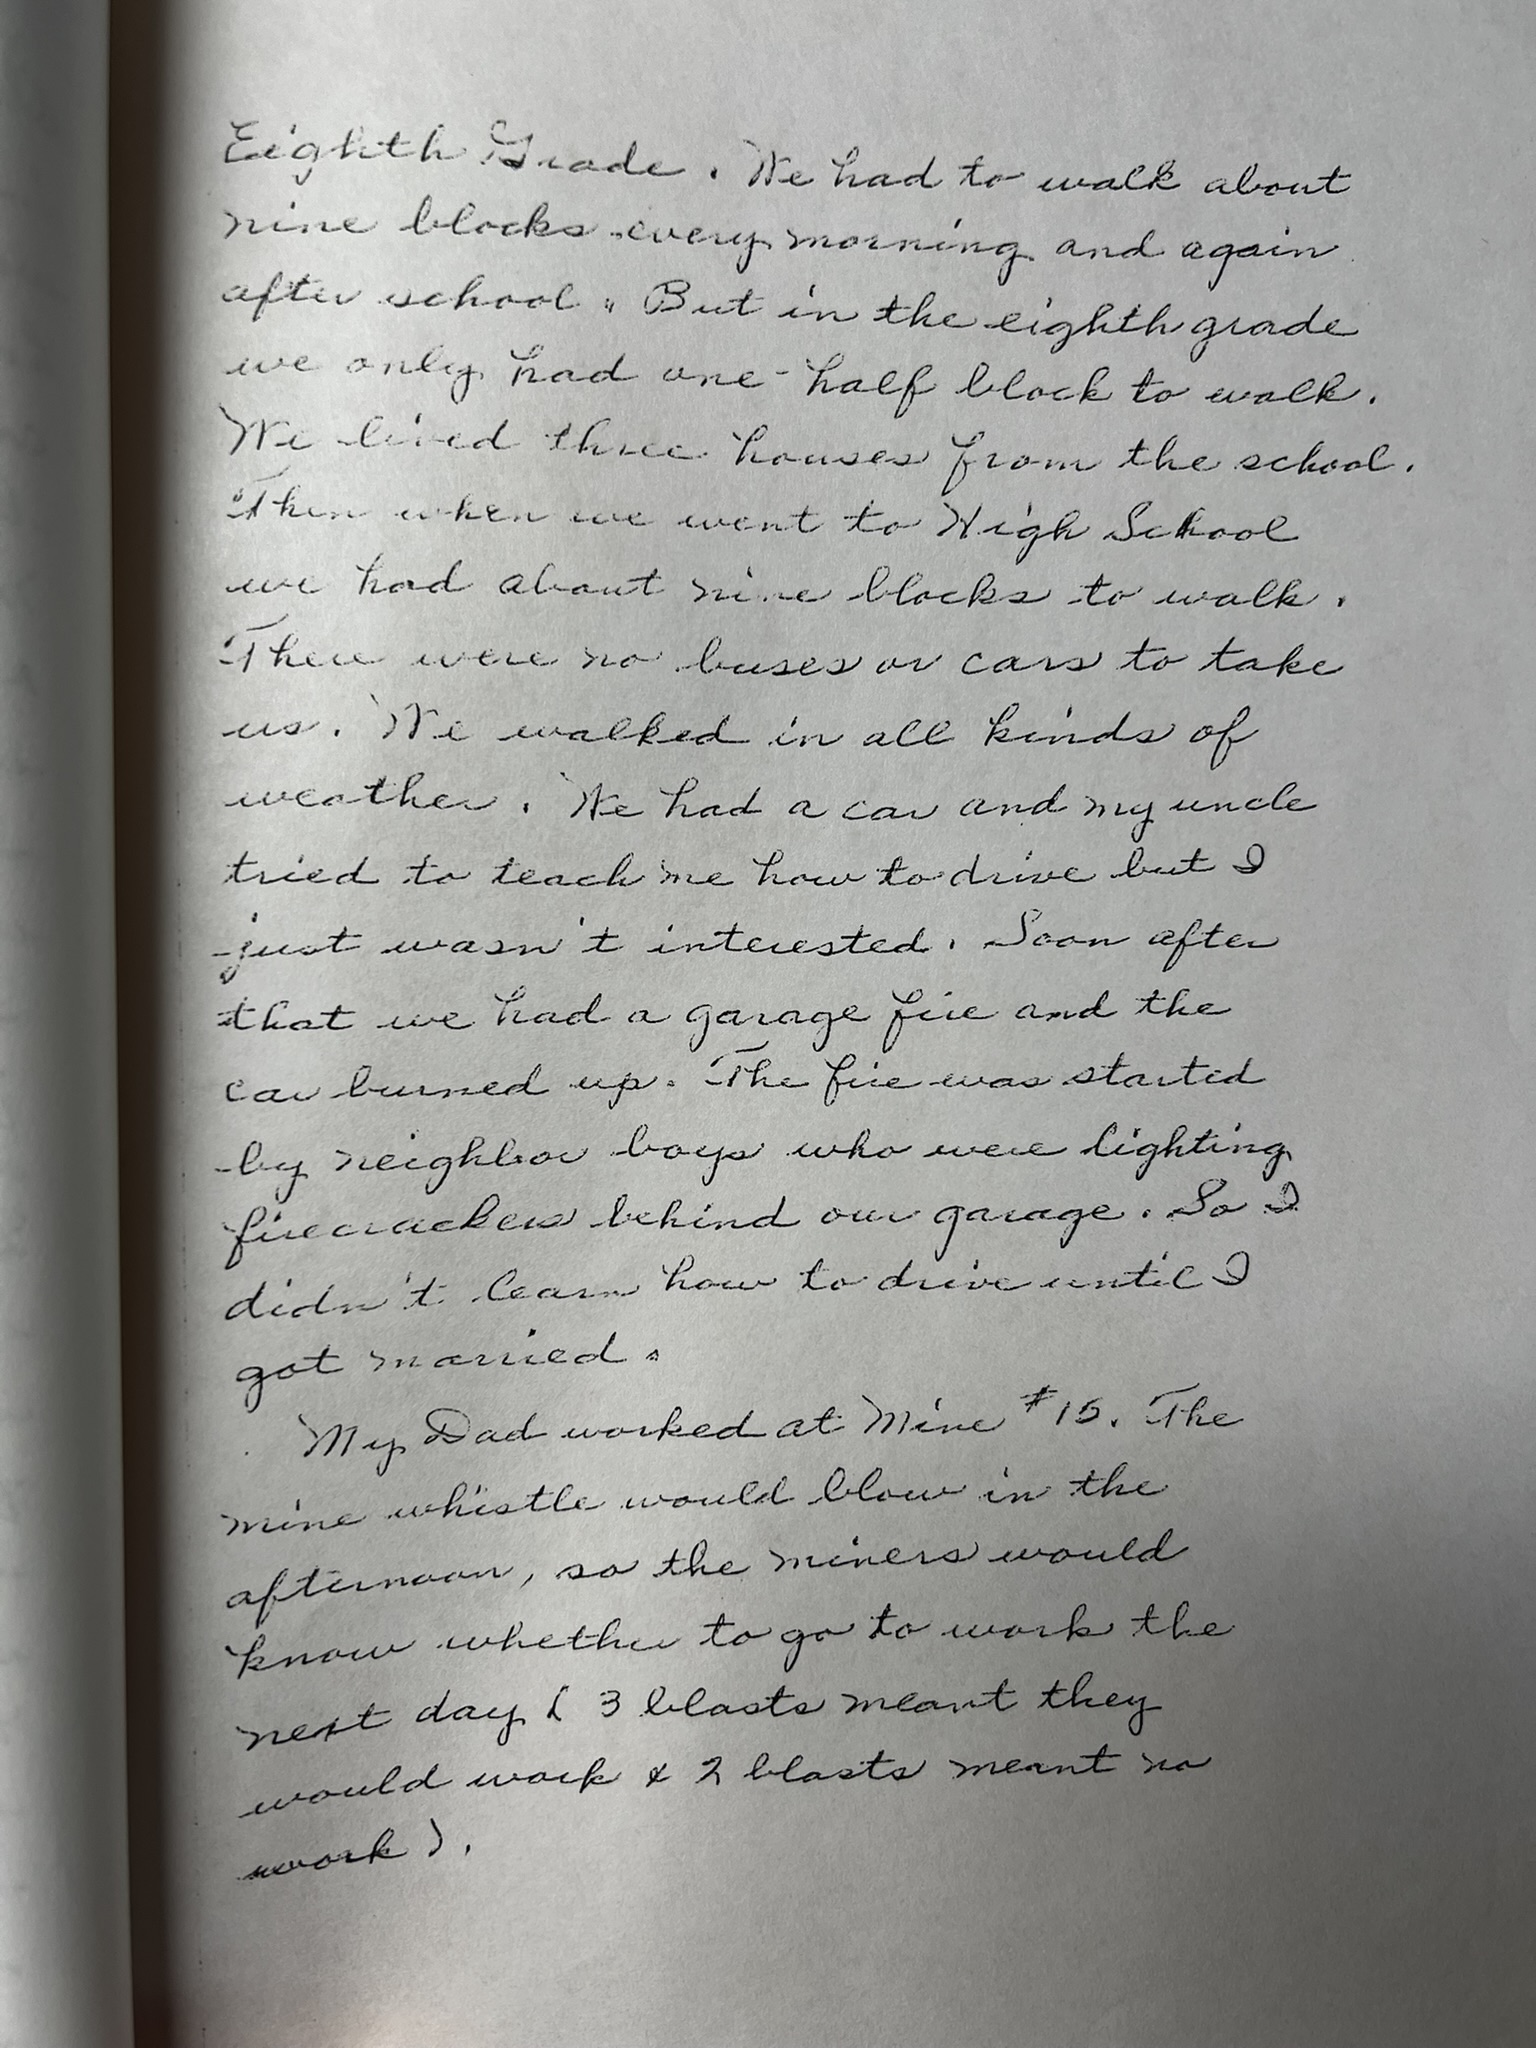 Eighth Grade. We had to walk about
nine blocks every morning and again
after school. But in the eighth grade
we only had one-half block to walk.
We lived three houses from the school.
Then when we went to High School
we had about nine blocks to walk.
There were no buses or cars to take
us. We walked in all kinds of
weather. We had a car and my uncle
tried to teach me how to drive but I
just wasn't interested. Soon after
that we had a garage fire and the
car burned up. The fire was started
by neighbor boys who were lighting
firecrackers behind our garage. So I
didn't learn how to drive until I
got married.
My Dad worked at Mine #15. The
mine whistle would blow in the
afternoon, so the miners would
know whether to go to work the
next day ( 3 blasts meant they
would work & 2 blasts meant no
work ).